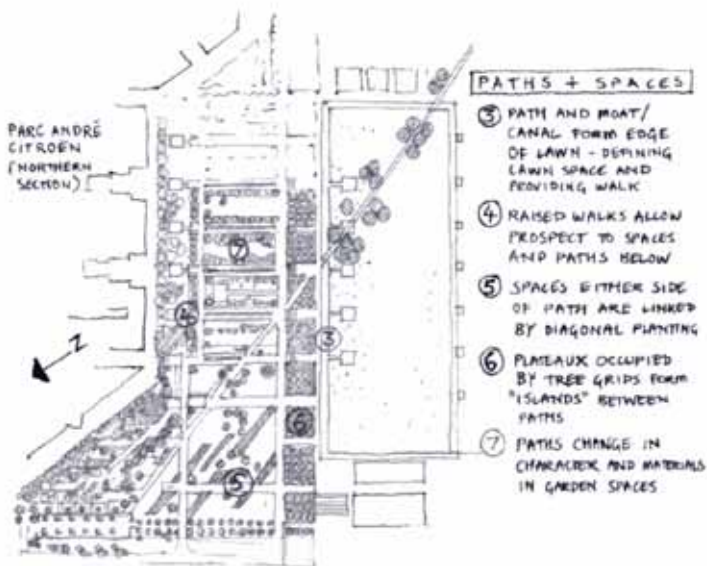 PARC ANDRÉ
CITROEN
(NORTHERN
SECTION)
N
7
4
3
6
5
PATHS + SPACES
③ PATH AND MOAT/
CANAL FORM EDGE
OF LAWN - DEFINING
LAWN SPACE AND
PROVIDING WALK
④ RAISED WALKS ALLOW
PROSPECT TO SPACES
AND PATHS BELOW
⑤ SPACES EITHER SIDE
OF PATH ARE LINKED
BY DIAGONAL PLANTING
⑥ PLATEAUX OCCUPIED
BY TREE GRIDS FORM
"ISLANDS" BETWEEN
PATHS
⑦ PATHS CHANGE IN
CHARACTER AND MATERIALS
IN GARDEN SPACES